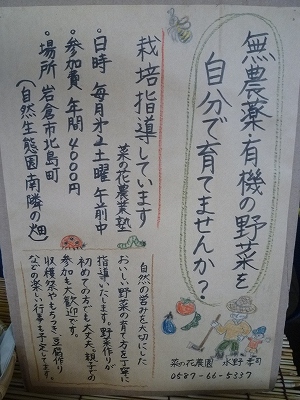 無農薬有機の野菜を
自分で育てませんか?
栽培指導しています
菜の花農業塾
・日時 毎月才2土曜 午前中
・参加費 年間4000円
・場所 岩倉市北島町
(自然生態園南隣の畑)
自然の営みを大切にした
おいしい野菜の育て方を丁寧に
指導いたします。野菜作りが
初めての方でも大丈夫。親子での
参加も大歓迎です。
収穫祭やもちつき、豆腐作り
などの楽しい行事も予定してます。
菜の花農園 水野 幸司
0587-66-5337